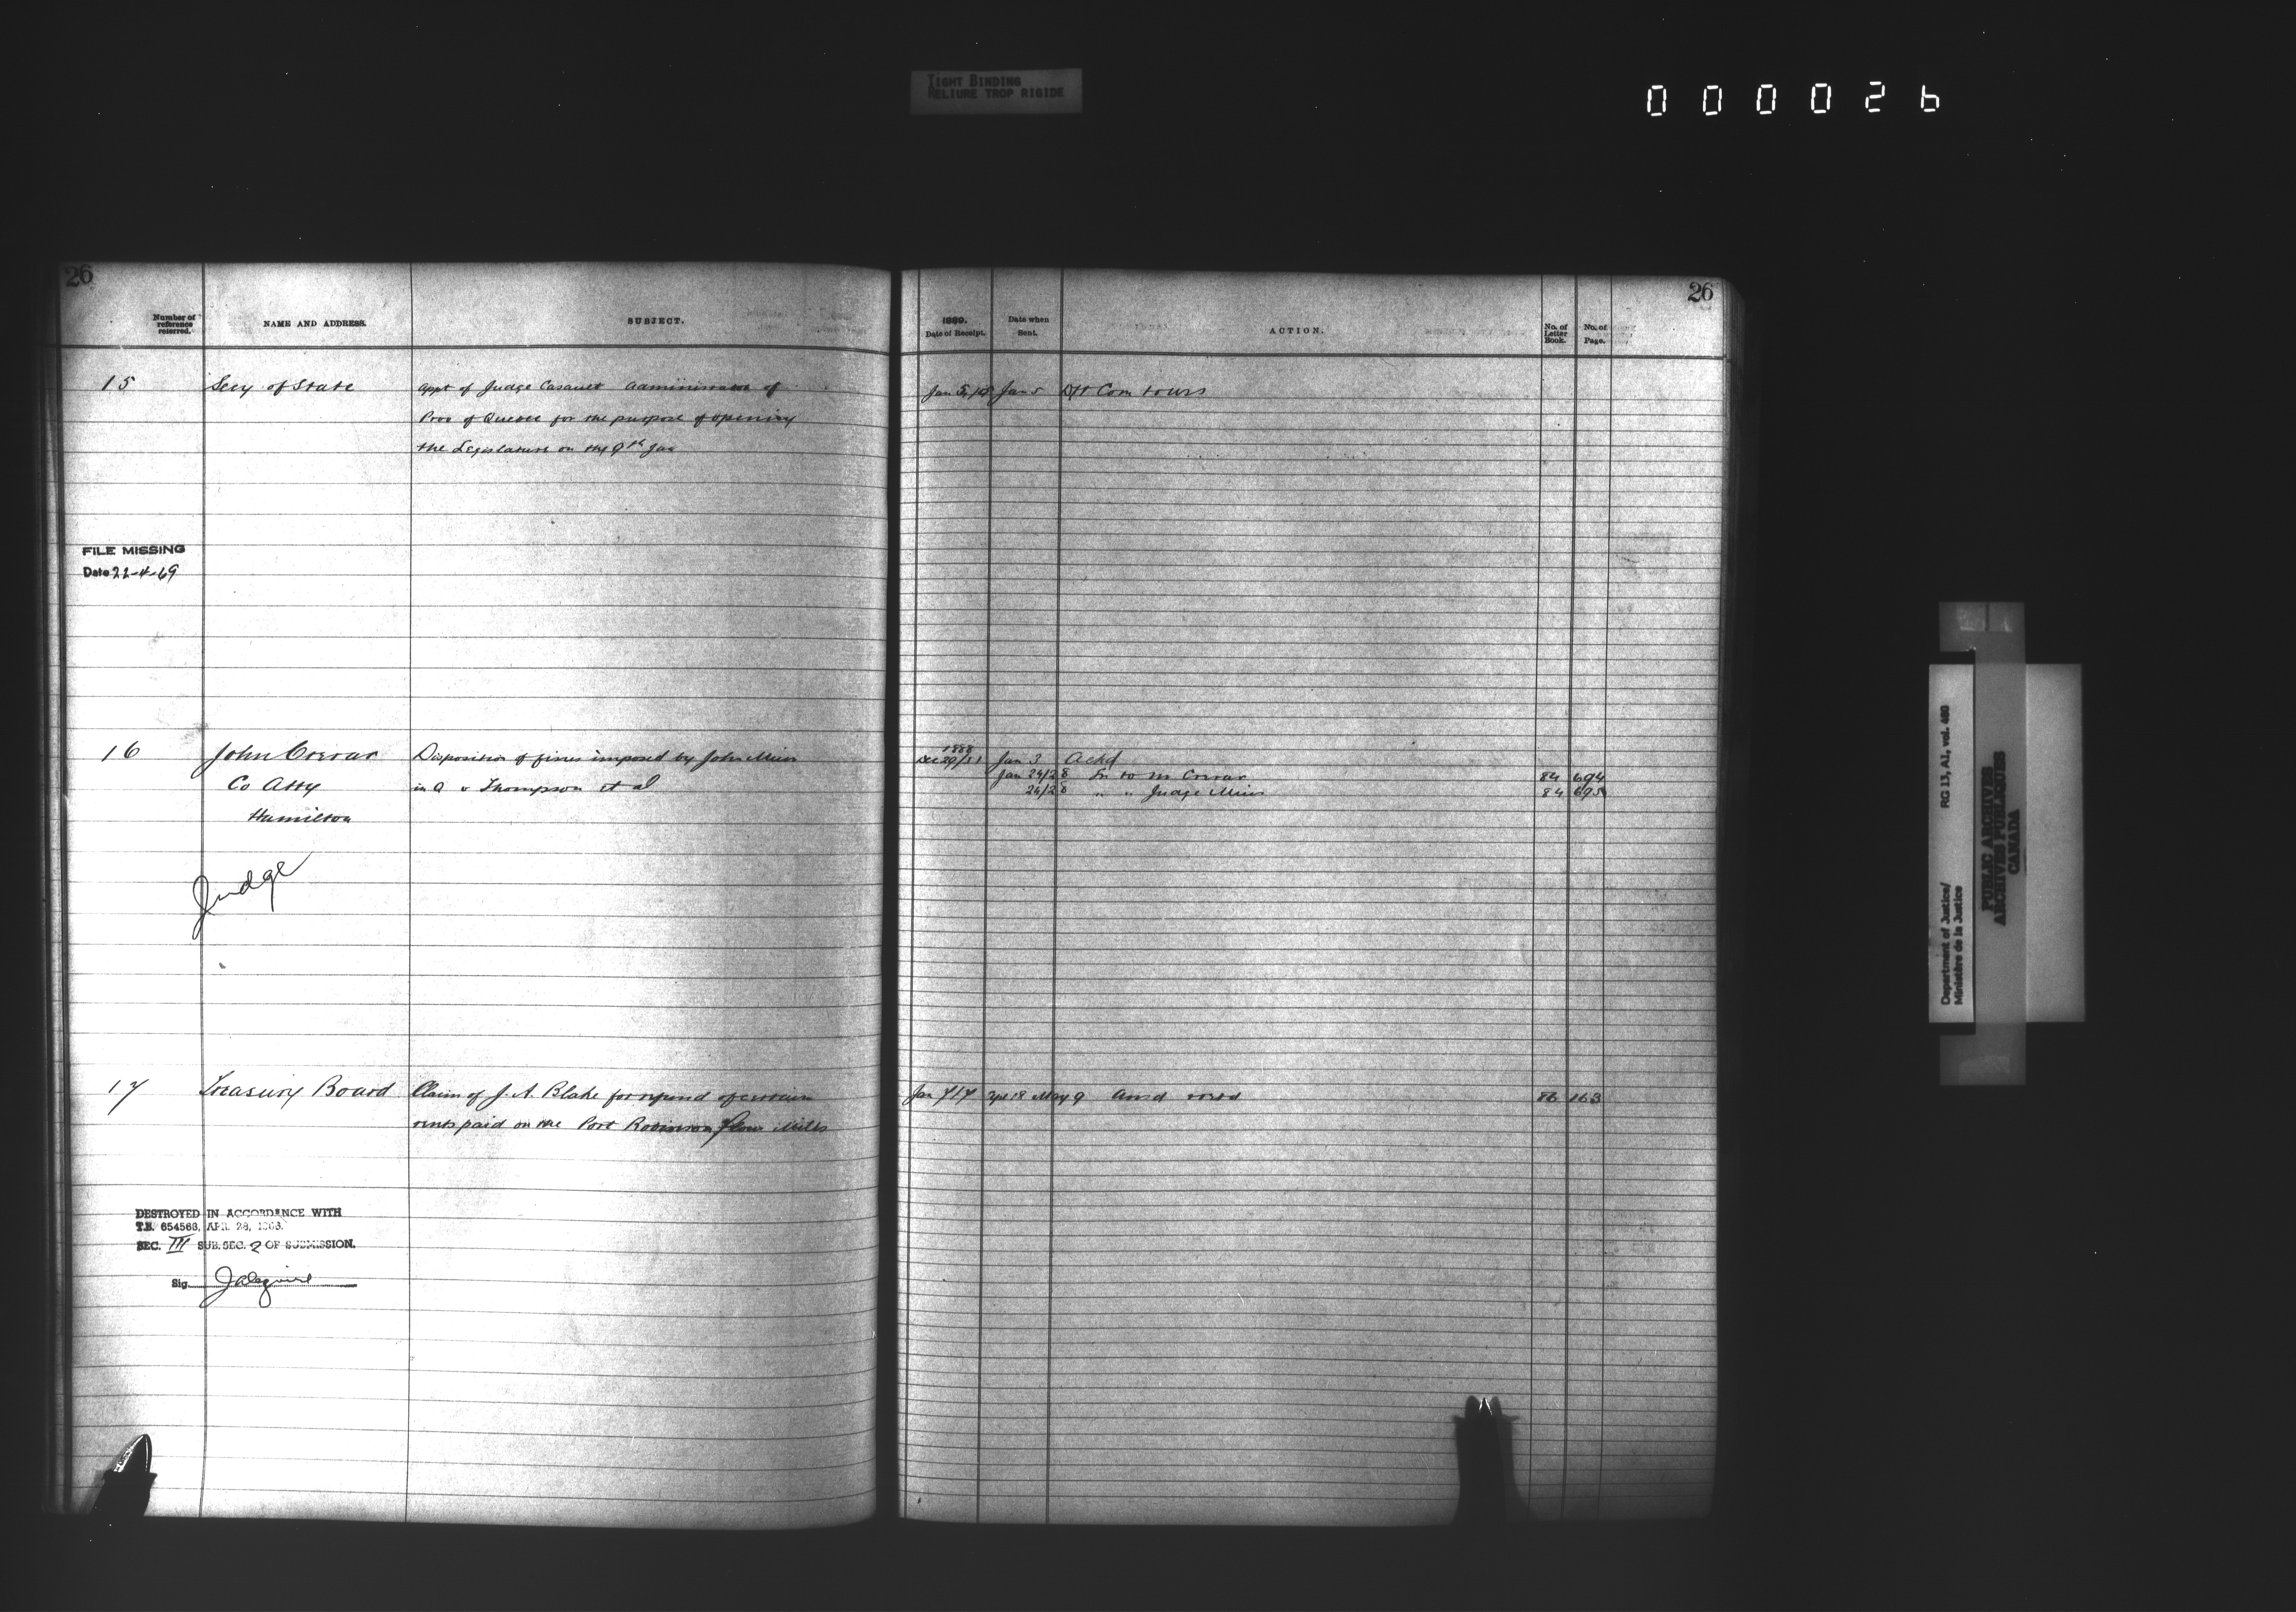 TIGHT BINDING
RELIURE TROP RIGIDE
000026
26
Number of reference referred.
NAME AND ADDRESS.
SUBJECT.
15
Secy of State
Appt of Judge Casault Administrator of
Prov of Quebec for the purpose of opening
the Legislature on the 9th Jan
FILE MISSING
Date 22-4-69
16
John Crerar
Co Atty
Hamilton
Disposition of fines imposed by John Muir
in Q v Thompson et al
Judge
17
Treasury Board
Claim of J. A. Blake for refund of certain
rents paid on the Port Robinson Flour Mills
DESTROYED IN ACCORDANCE WITH
T.B. 654563, APR. 28, 1966.
SEC. III SUB. SEC. 2 OF SUBMISSION.
Sig.
26
1889.
Date of Receipt.
Date when Sent.
ACTION.
No. of Letter Book.
No. of Page.
Jan 5 Jan 5
1888
Dec 29/31 Jan 3 Ackd
Jan 24/28 to Mr Crerar 84 694
24/28 " " Judge Muir 84 695
Jan 7/17 Apl 18 May 9 Ansd 86 163
Department of Justice/
Ministère de la Justice
RG 13, A1, vol. 480
PUBLIC ARCHIVES
ARCHIVES PUBLIQUES
CANADA